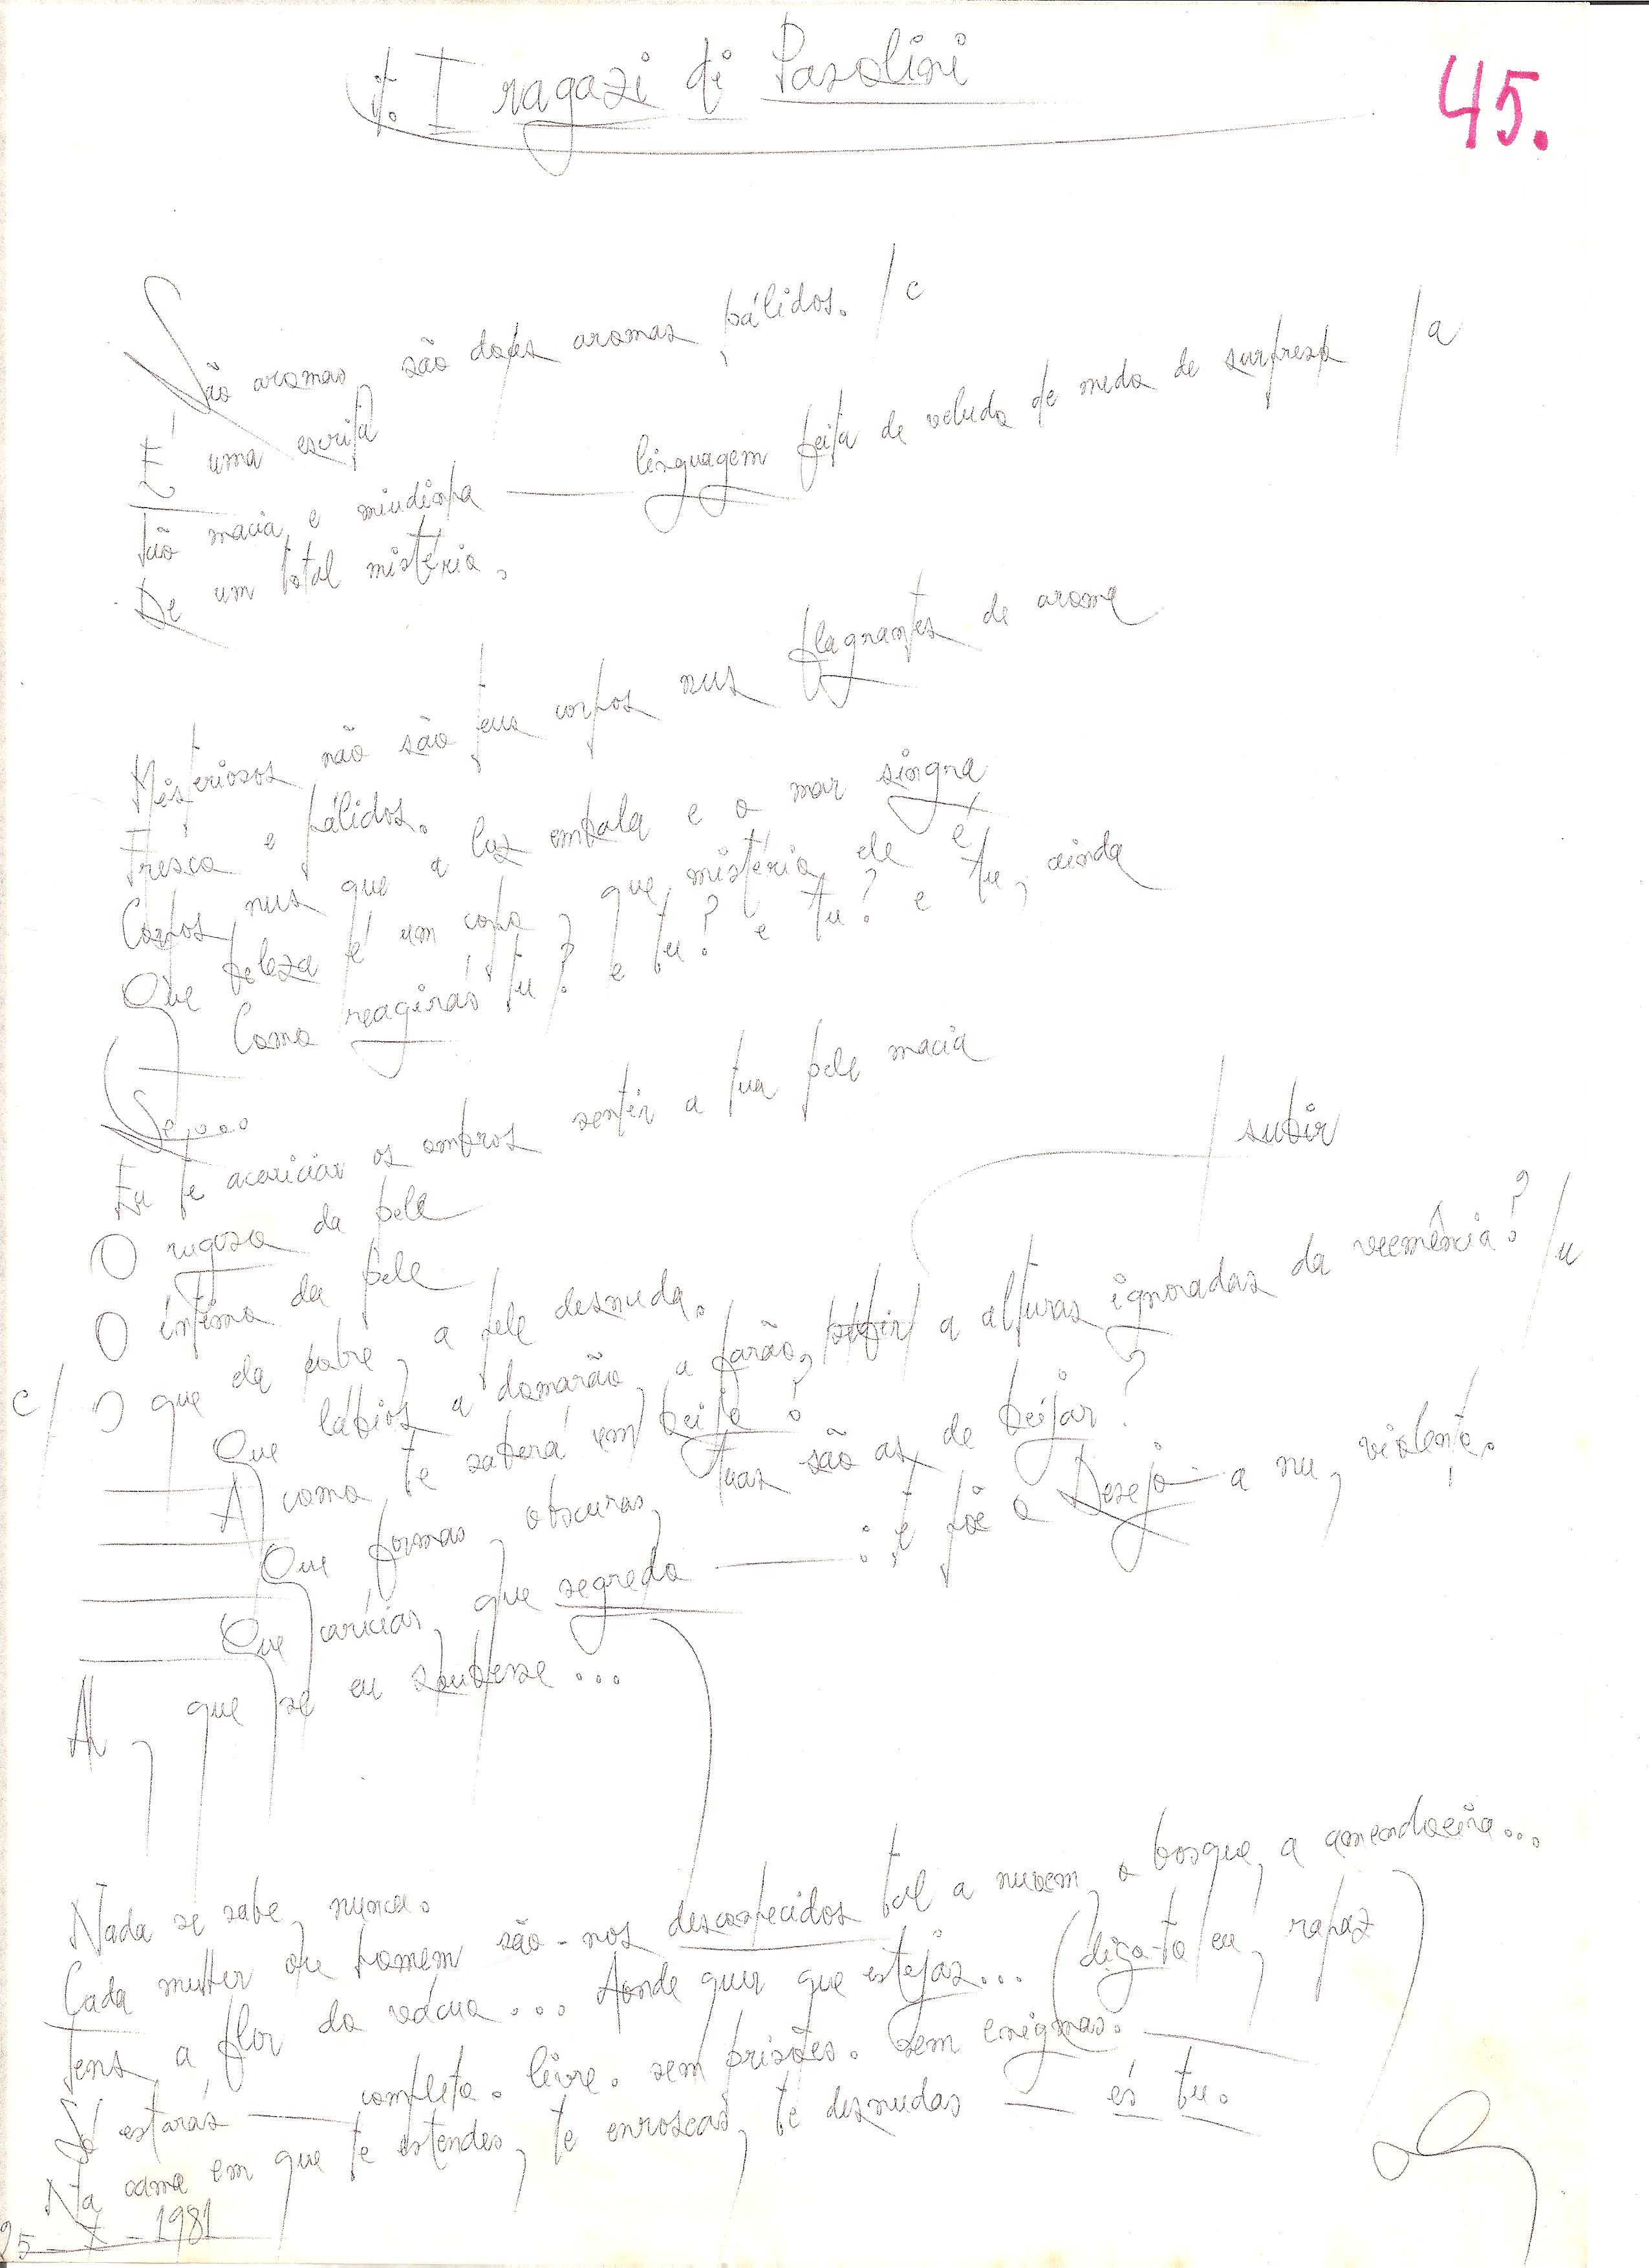 it. I ragazi di Pasolini
45.
São aromas, são doces aromas pálidos. / c
É uma escrita
Tão macia e miudinha — linguagem feita de veludo de medo de surpresa / a
De um total mistério.
Misteriosos não são teus corpos nus flagrantes de aroma
Fresco e pálidos.
Corpos nus que a luz embala e o mar singra
Que beleza é um corpo, que mistério ele é
Como reagirás tu? e tu? e tu? e tu, ainda
Se, ...
Eu te acariciar os ombros sentir a tua pele macia
O rugoso da pele
O íntimo da pele
subir
c/ O que ela cobre, a pele desnuda.
Que lábios a domarão, a farão, a alturas ignoradas da veemência? / u
A como te saberá em beijo?
Que formas, obscuras, tuas são as de beijar?
Que carícias, que segredo — : te põe o Desejo a nu, violento.
Ah, que se eu soubesse...
Nada se sabe, nunca.
Cada mulher ou homem são-nos desconhecidos tal a nuvem, o bosque, a amendoeira...
Tens a flor do vácuo... Aonde quer que estejas... (diga-to eu, rapaz)
Só estarás — completo. livre. sem prisões. sem enigmas. —
Na cama em que te estendes, te enroscas, te desnudas — és tu.
25 - X - 1981